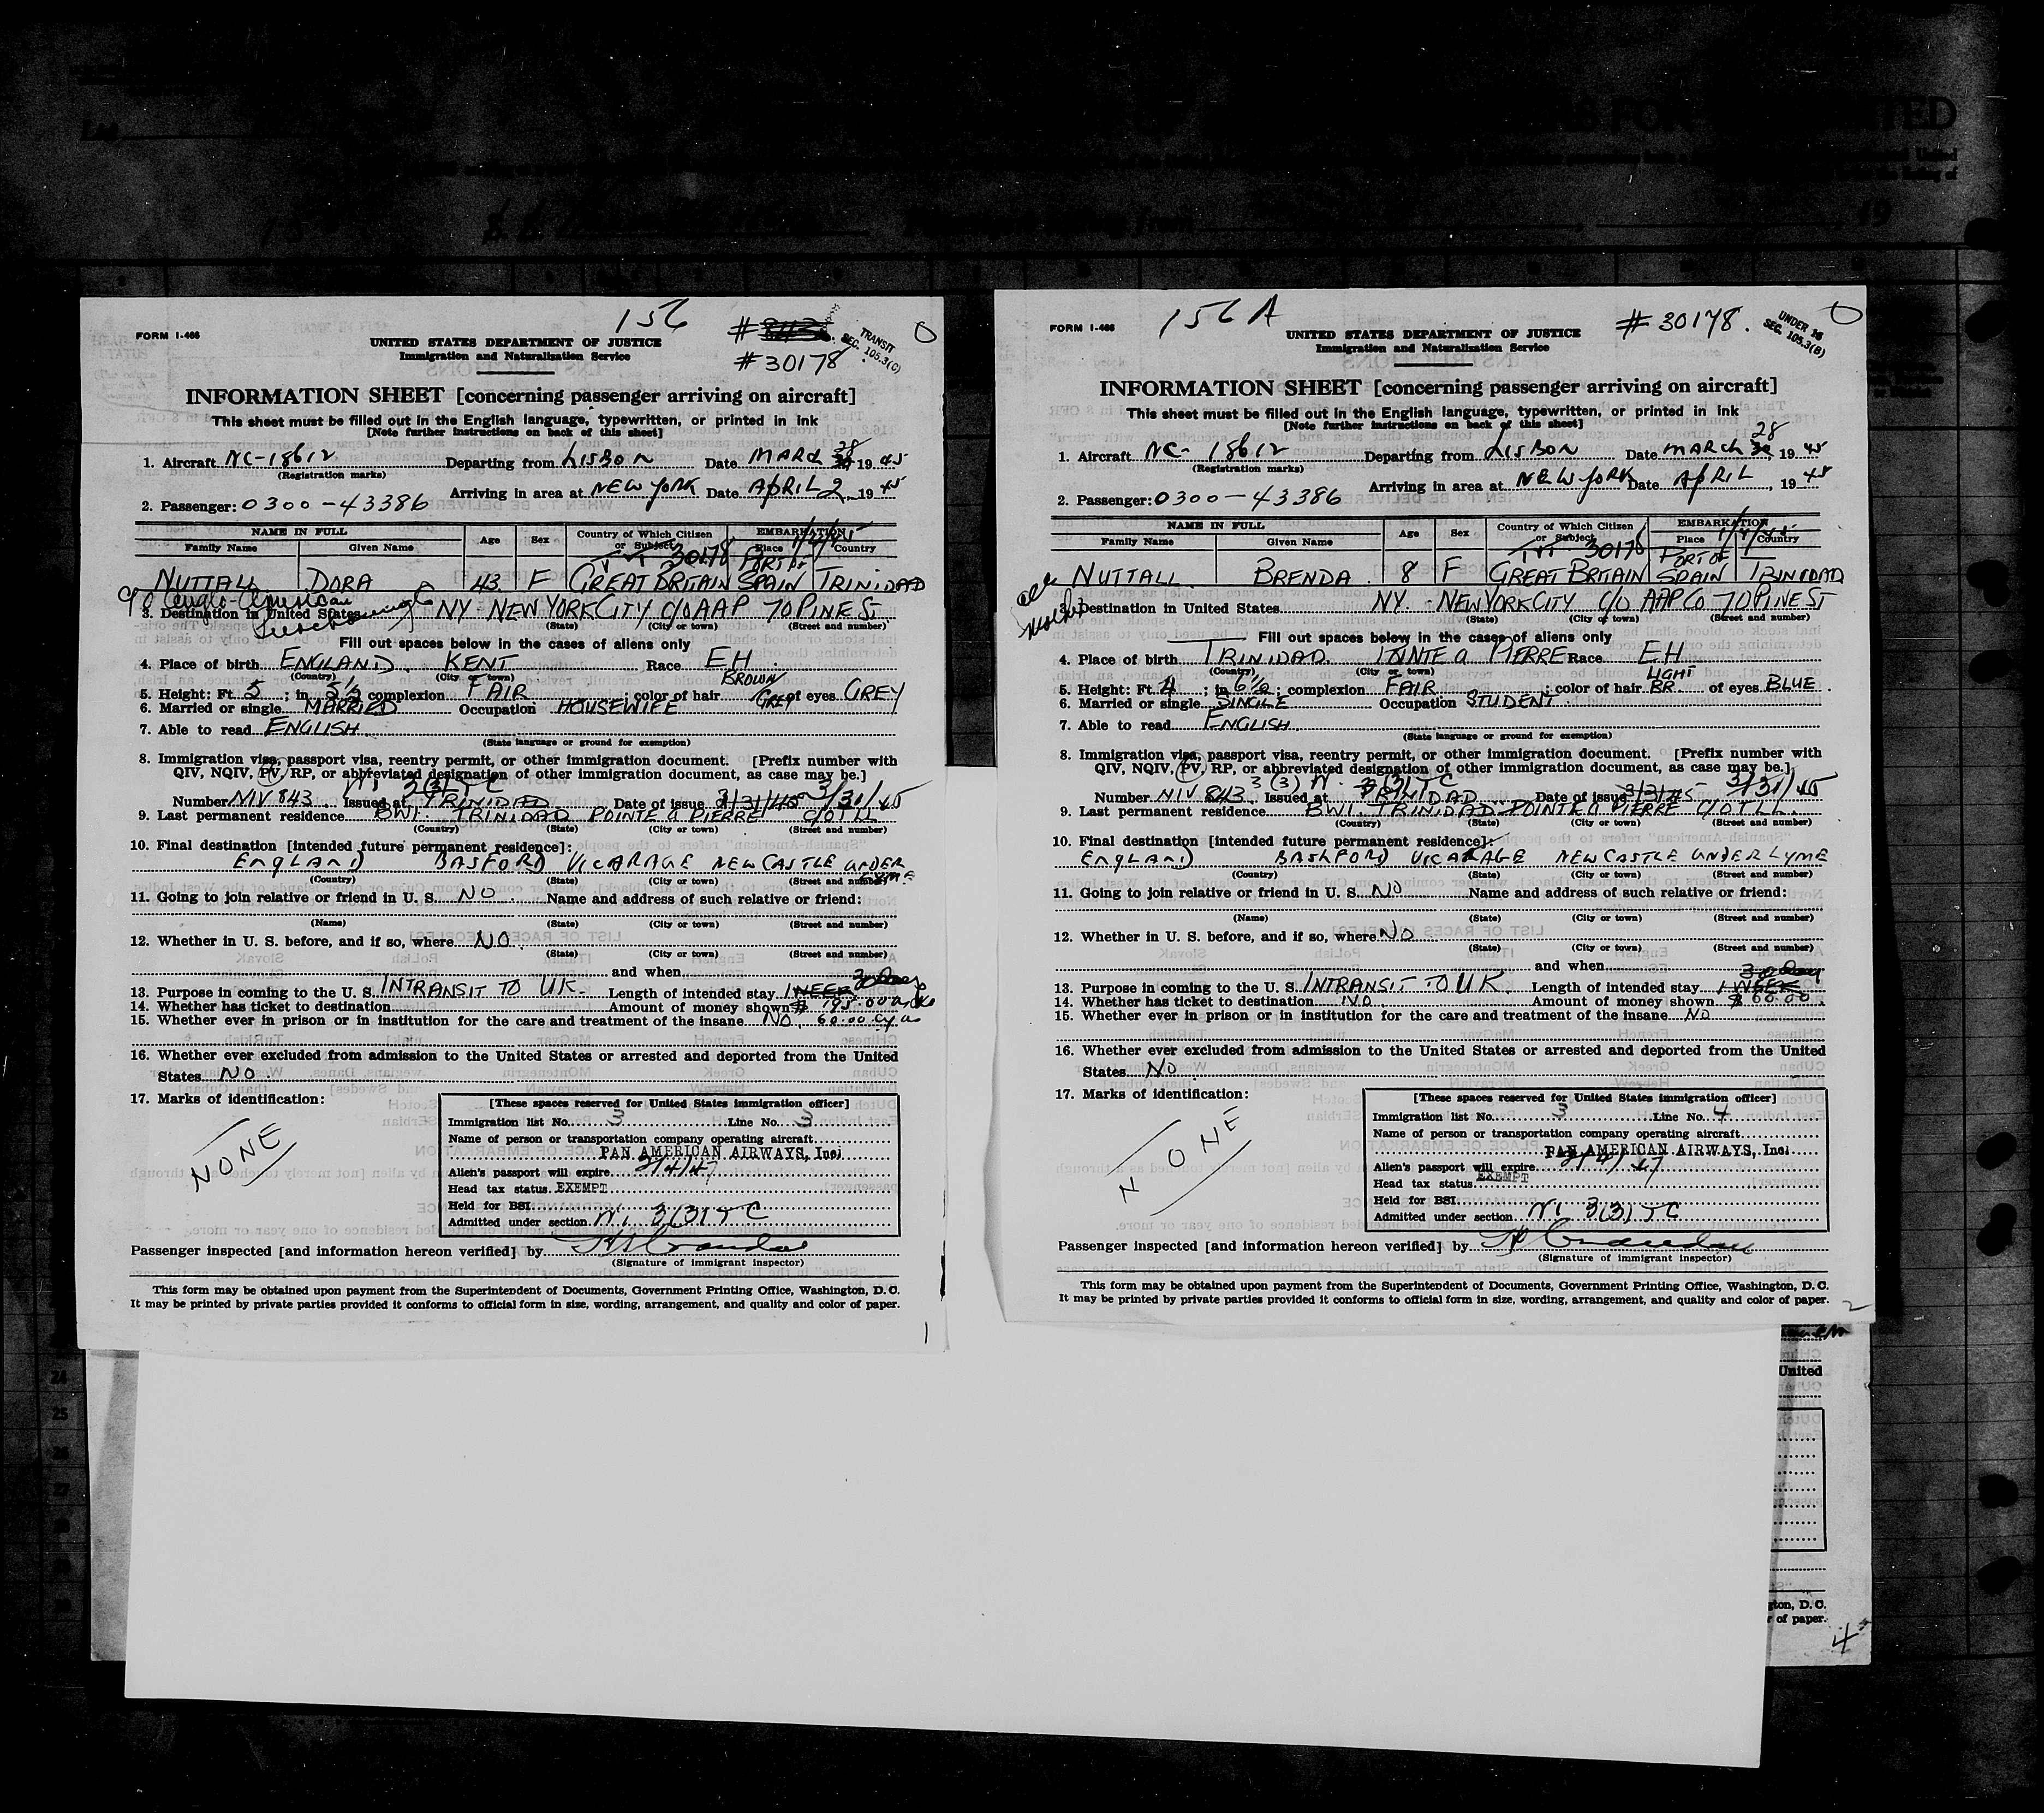 156
# 30178
TRANSIT
SEC. 105.3(C)
FORM I-466
UNITED STATES DEPARTMENT OF JUSTICE
Immigration and Naturalization Service
INFORMATION SHEET [concerning passenger arriving on aircraft]
This sheet must be filled out in the English language, typewritten, or printed in ink
[Note further instructions on back of this sheet]
1. Aircraft NC-18612 Departing from LISBON Date MARCH 28 1945
(Registration marks)
Arriving in area at NEW YORK Date APRIL 2, 1945
2. Passenger: 0300-43386
NAME IN FULL Age Sex Country of Which Citizen or Subject EMBARKATION
Family Name Given Name Place Country
30178
NUTTALL DORA 43 F GREAT BRITAIN PORT OF SPAIN TRINIDAD
c/o Anglo-American
3. Destination in United States NY - NEW YORK CITY C/O AAP 70 PINE ST
(State) (City or town) (Street and number)
Fill out spaces below in the cases of aliens only
4. Place of birth ENGLAND KENT Race EH
(Country) (City or town)
5. Height: Ft. 5 ; in 5½ complexion FAIR ; color of hair BROWN GREY of eyes GREY
6. Married or single MARRIED Occupation HOUSEWIFE
7. Able to read ENGLISH
(State language or ground for exemption)
8. Immigration visa, passport visa, reentry permit, or other immigration document. [Prefix number with
QIV, NQIV, PV, RP, or abbreviated designation of other immigration document, as case may be.]
3(3) TC
Number NIV 843 Issued at TRINIDAD Date of issue 3/31/45 3/31/45
9. Last permanent residence BWI. TRINIDAD POINTE A PIERRE C/O TLL
(Country) (State) (City or town) (Street and number)
10. Final destination [intended future permanent residence]:
ENGLAND BASFORD VICARAGE NEWCASTLE UNDER LYME
(Country) (State) (City or town) (Street and number)
11. Going to join relative or friend in U. S. NO Name and address of such relative or friend:
(Name) (State) (City or town) (Street and number)
12. Whether in U. S. before, and if so, where NO
(State) (City or town) (Street and number)
and when
13. Purpose in coming to the U. S. INTRANSIT TO UK. Length of intended stay 1 WEEK 30 days
14. Whether has ticket to destination Amount of money shown $ 195.00
15. Whether ever in prison or in institution for the care and treatment of the insane NO. 60.00
16. Whether ever excluded from admission to the United States or arrested and deported from the United
States NO.
17. Marks of identification:
NONE
[These spaces reserved for United States immigration officer]
Immigration list No. 3 Line No. 3
Name of person or transportation company operating aircraft
PAN AMERICAN AIRWAYS, Inc.
Alien's passport will expire 2/4/47
Head tax status EXEMPT
Held for BSI
Admitted under section N.I. 3(3) TC
Passenger inspected [and information hereon verified] by
(Signature of immigrant inspector)
This form may be obtained upon payment from the Superintendent of Documents, Government Printing Office, Washington, D. C.
It may be printed by private parties provided it conforms to official form in size, wording, arrangement, and quality and color of paper.
1
156 A
# 30178.
UNDER 16
SEC. 105.3(B)
FORM I-466
UNITED STATES DEPARTMENT OF JUSTICE
Immigration and Naturalization Service
INFORMATION SHEET [concerning passenger arriving on aircraft]
This sheet must be filled out in the English language, typewritten, or printed in ink
[Note further instructions on back of this sheet]
1. Aircraft NC-18612 Departing from LISBON Date MARCH 28, 1945
(Registration marks)
Arriving in area at NEW YORK Date APRIL, 1945
2. Passenger: 0300-43386
NAME IN FULL Age Sex Country of Which Citizen or Subject EMBARKATION
Family Name Given Name Place Country
30178
NUTTALL BRENDA 8 F GREAT BRITAIN PORT OF SPAIN TRINIDAD
3. Destination in United States NY - NEW YORK CITY C/O AAP CO 70 PINE ST
(State) (City or town) (Street and number)
Fill out spaces below in the cases of aliens only
4. Place of birth TRINIDAD. POINTE A PIERRE Race EH
(Country) (City or town)
5. Height: Ft. 4 ; in 6½ ; complexion FAIR ; color of hair LIGHT BR. of eyes BLUE
6. Married or single SINGLE Occupation STUDENT.
7. Able to read ENGLISH.
(State language or ground for exemption)
8. Immigration visa, passport visa, reentry permit, or other immigration document. [Prefix number with
QIV, NQIV, PV, RP, or abbreviated designation of other immigration document, as case may be.]
3(3) TC
Number NIV 843 Issued at TRINIDAD Date of issue 3/31/45 3/31/45
9. Last permanent residence BWI. TRINIDAD POINTE A PIERRE C/O TLL.
(Country) (State) (City or town) (Street and number)
10. Final destination [intended future permanent residence]:
ENGLAND BASHFORD VICARAGE NEWCASTLE UNDER LYME
(Country) (State) (City or town) (Street and number)
11. Going to join relative or friend in U. S. NO Name and address of such relative or friend:
(Name) (State) (City or town) (Street and number)
12. Whether in U. S. before, and if so, where NO
(State) (City or town) (Street and number)
and when
13. Purpose in coming to the U. S. INTRANSIT TO UK. Length of intended stay 1 WEEK 30 day
14. Whether has ticket to destination NO. Amount of money shown $ 60.00.
15. Whether ever in prison or in institution for the care and treatment of the insane NO
16. Whether ever excluded from admission to the United States or arrested and deported from the United
States NO.
17. Marks of identification:
NONE
[These spaces reserved for United States immigration officer]
Immigration list No. 3 Line No. 4
Name of person or transportation company operating aircraft
PAN AMERICAN AIRWAYS, Inc.
Alien's passport will expire 2/4/47
Head tax status EXEMPT
Held for BSI
Admitted under section N.I. 3(3) TC
Passenger inspected [and information hereon verified] by
(Signature of immigrant inspector)
This form may be obtained upon payment from the Superintendent of Documents, Government Printing Office, Washington, D. C.
It may be printed by private parties provided it conforms to official form in size, wording, arrangement, and quality and color of paper.
2
United
gton, D. C.
of paper.
4
24
25
26
27